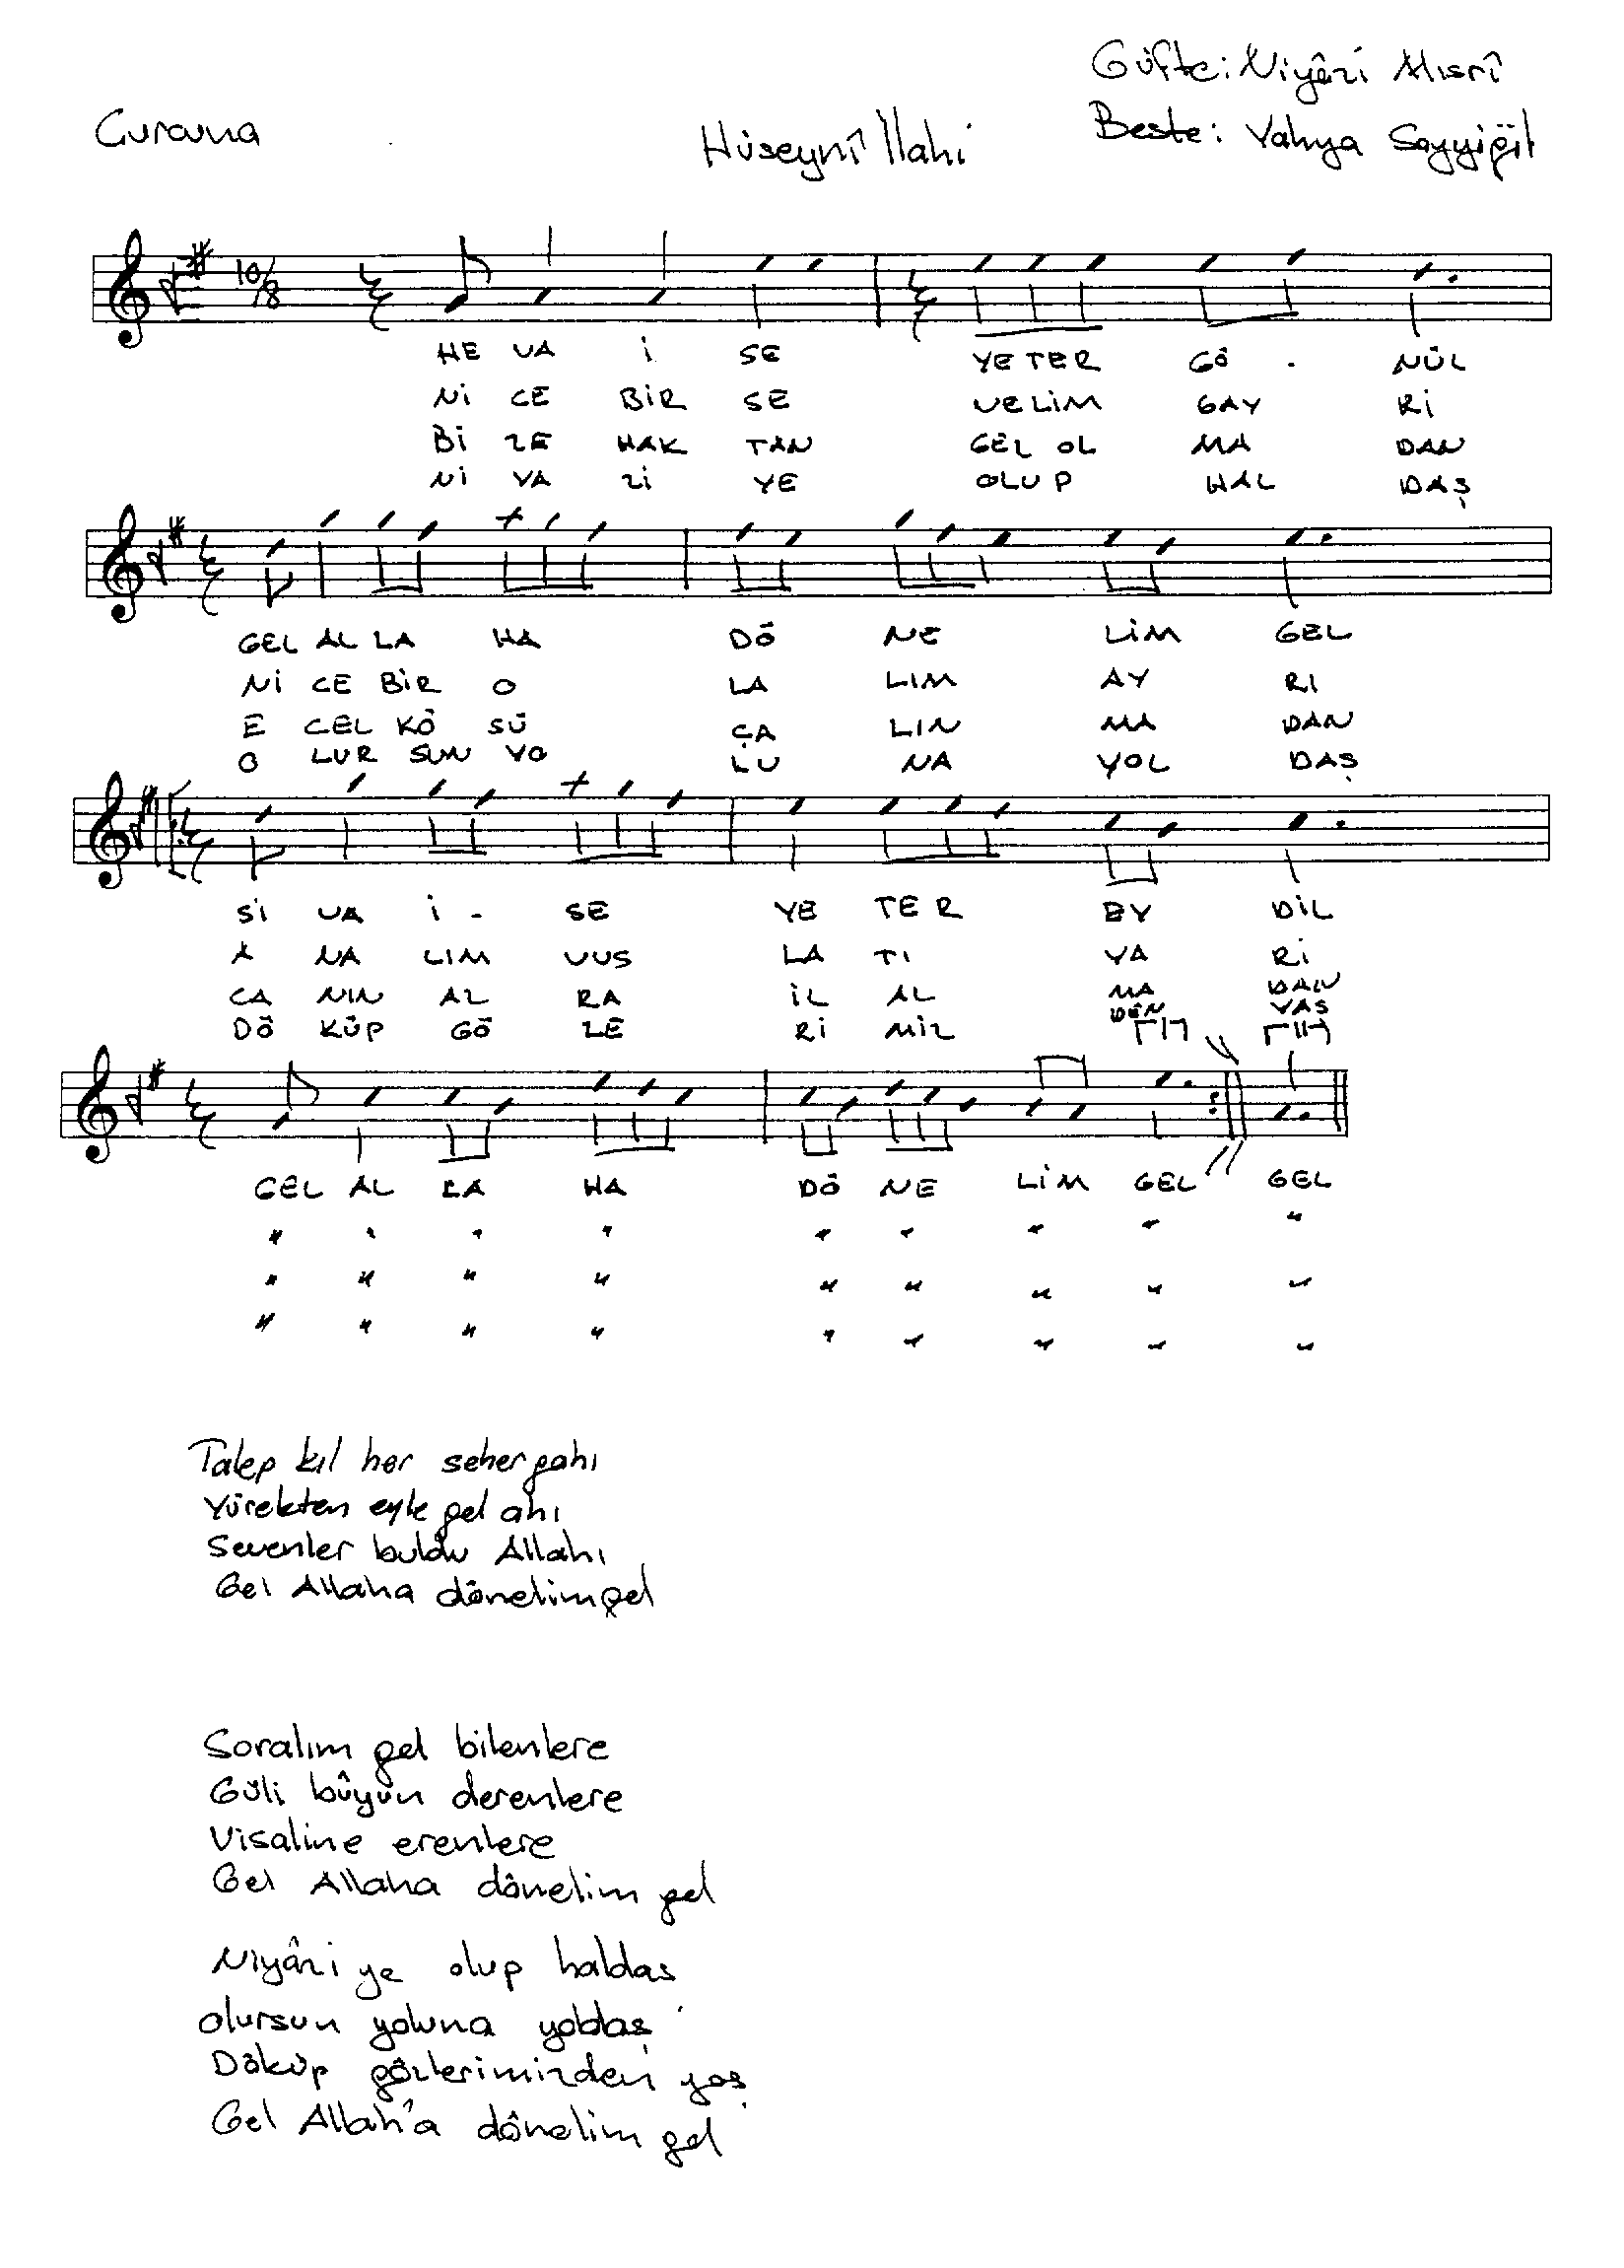 Güfte: Niyâzi Mısrî
Curcuna
Hüseynî İlahi
Beste: Yahya Soyyiğit
10/8
HE VA İ SE YETER GÖ . NÜL
Nİ CE BİR SE VELİM GAY Rİ
Bİ ZE HAK TAN GEL OL MA DAN
Nİ YA Zİ YE OLUP HAL DAŞ
GEL AL LA HA DÖ NE LİM GEL
Nİ CE BİR O LA LIM AY RI
E CEL KÖ SÜ ÇA LIN MA DAN
O LUR SUN YO LU NA YOL DAŞ
Sİ VA İ - SE YE TER EY DİL
A NA LIM VUS LA TI YA Rİ
CA NIN AZ RA İL AL MA DAN
DÖ KÜP GÖ ZE Rİ MİZ DEN YAŞ
GEL AL LA HA DÖ NE LİM GEL GEL
" " " " " " " " "
" " " " " " " " "
" " " " " " " " "
Talep kıl her seher gahı
Yürekten eyle gel ahı
Sevenler buldu Allahı
Gel Allaha dönelim gel
Soralım gel bilenlere
Güli bûyun derenlere
Visaline erenlere
Gel Allaha dönelim gel
Niyâzi ye olup haldaş
olursun yoluna yoldaş
Döküp gözlerimizden yaş
Gel Allah'a dönelim gel